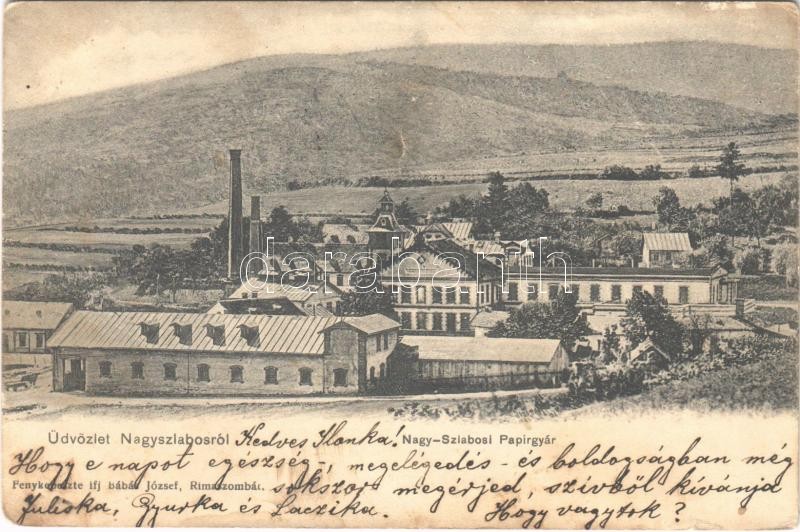 darabanth
Üdvözlet Nagyszlabosról Kedves Ilonka! Nagy-Szlabosi Papirgyár
Hogy e napot egészség, megelégedés - és boldogságban még
Fenykepezte ifj bábás József, Rimaszombát. sokszor megérjed, szívből kívánja
Juliska, Gyurka és Laczika. Hogy vagytok?